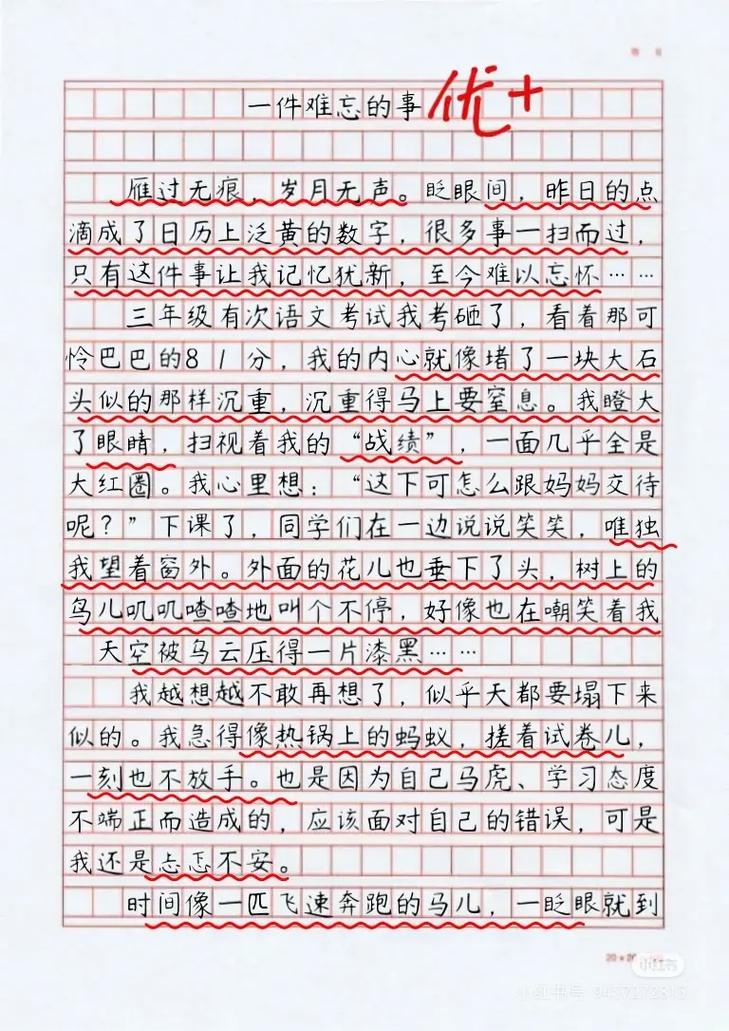 一件难忘的事
优+
雁过无痕，岁月无声。眨眼间，昨日的点
滴成了日历上泛黄的数字，很多事一扫而过，
只有这件事让我记忆犹新，至今难以忘怀……
三年级有次语文考试我考砸了，看着那可
怜巴巴的81分，我的内心就像堵了一块大石
头似的那样沉重，沉重得马上要窒息。我瞪大
了眼睛，扫视着我的“战绩”，一面几乎全是
大红圈。我心里想：“这下可怎么跟妈妈交待
呢？”下课了，同学们在一边说说笑笑，唯独
我望着窗外。外面的花儿也垂下了头，树上的
鸟儿叽叽喳喳地叫个不停，好像也在嘲笑着我
天空被乌云压得一片漆黑……
我越想越不敢再想了，似乎天都要塌下来
似的。我急得像热锅上的蚂蚁，搓着试卷儿，
一刻也不放手。也是因为自己马虎、学习态度
不端正而造成的，应该面对自己的错误，可是
我还是忐忑不安。
时间像一匹飞速奔跑的马儿，一眨眼就到
小红书